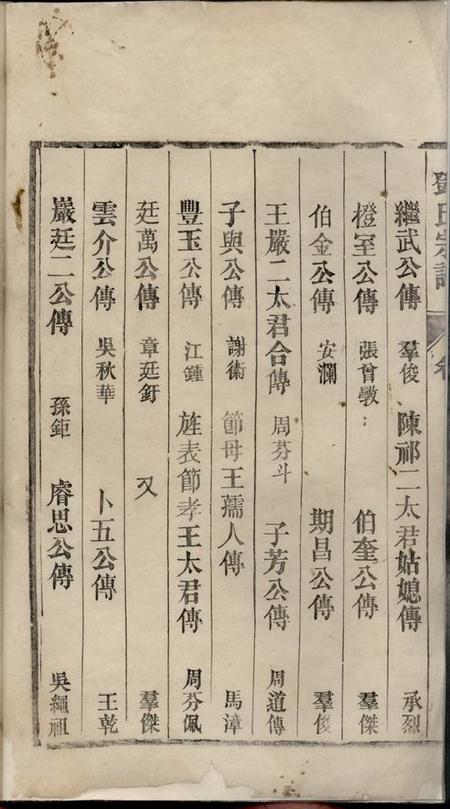 氏宗譜
繼武公傳 羣俊 陳祁二太君姑媳傳 承烈
橙室公傳 張曾斆 伯奎公傳 羣傑
伯金公傳 安瀾 期昌公傳 羣俊
王嚴二太君合傳 周芬斗 子芳公傳 周道傳
子與公傳 謝衛 節母王孺人傳 馬漳
豐玉公傳 江鍾 旌表節孝王太君傳 周芬佩
廷萬公傳 章廷釪 又 羣傑
雲介公傳 吳秋華 卜五公傳 王乾
巖廷二公傳 孫鉅 睿思公傳 吳繩祖